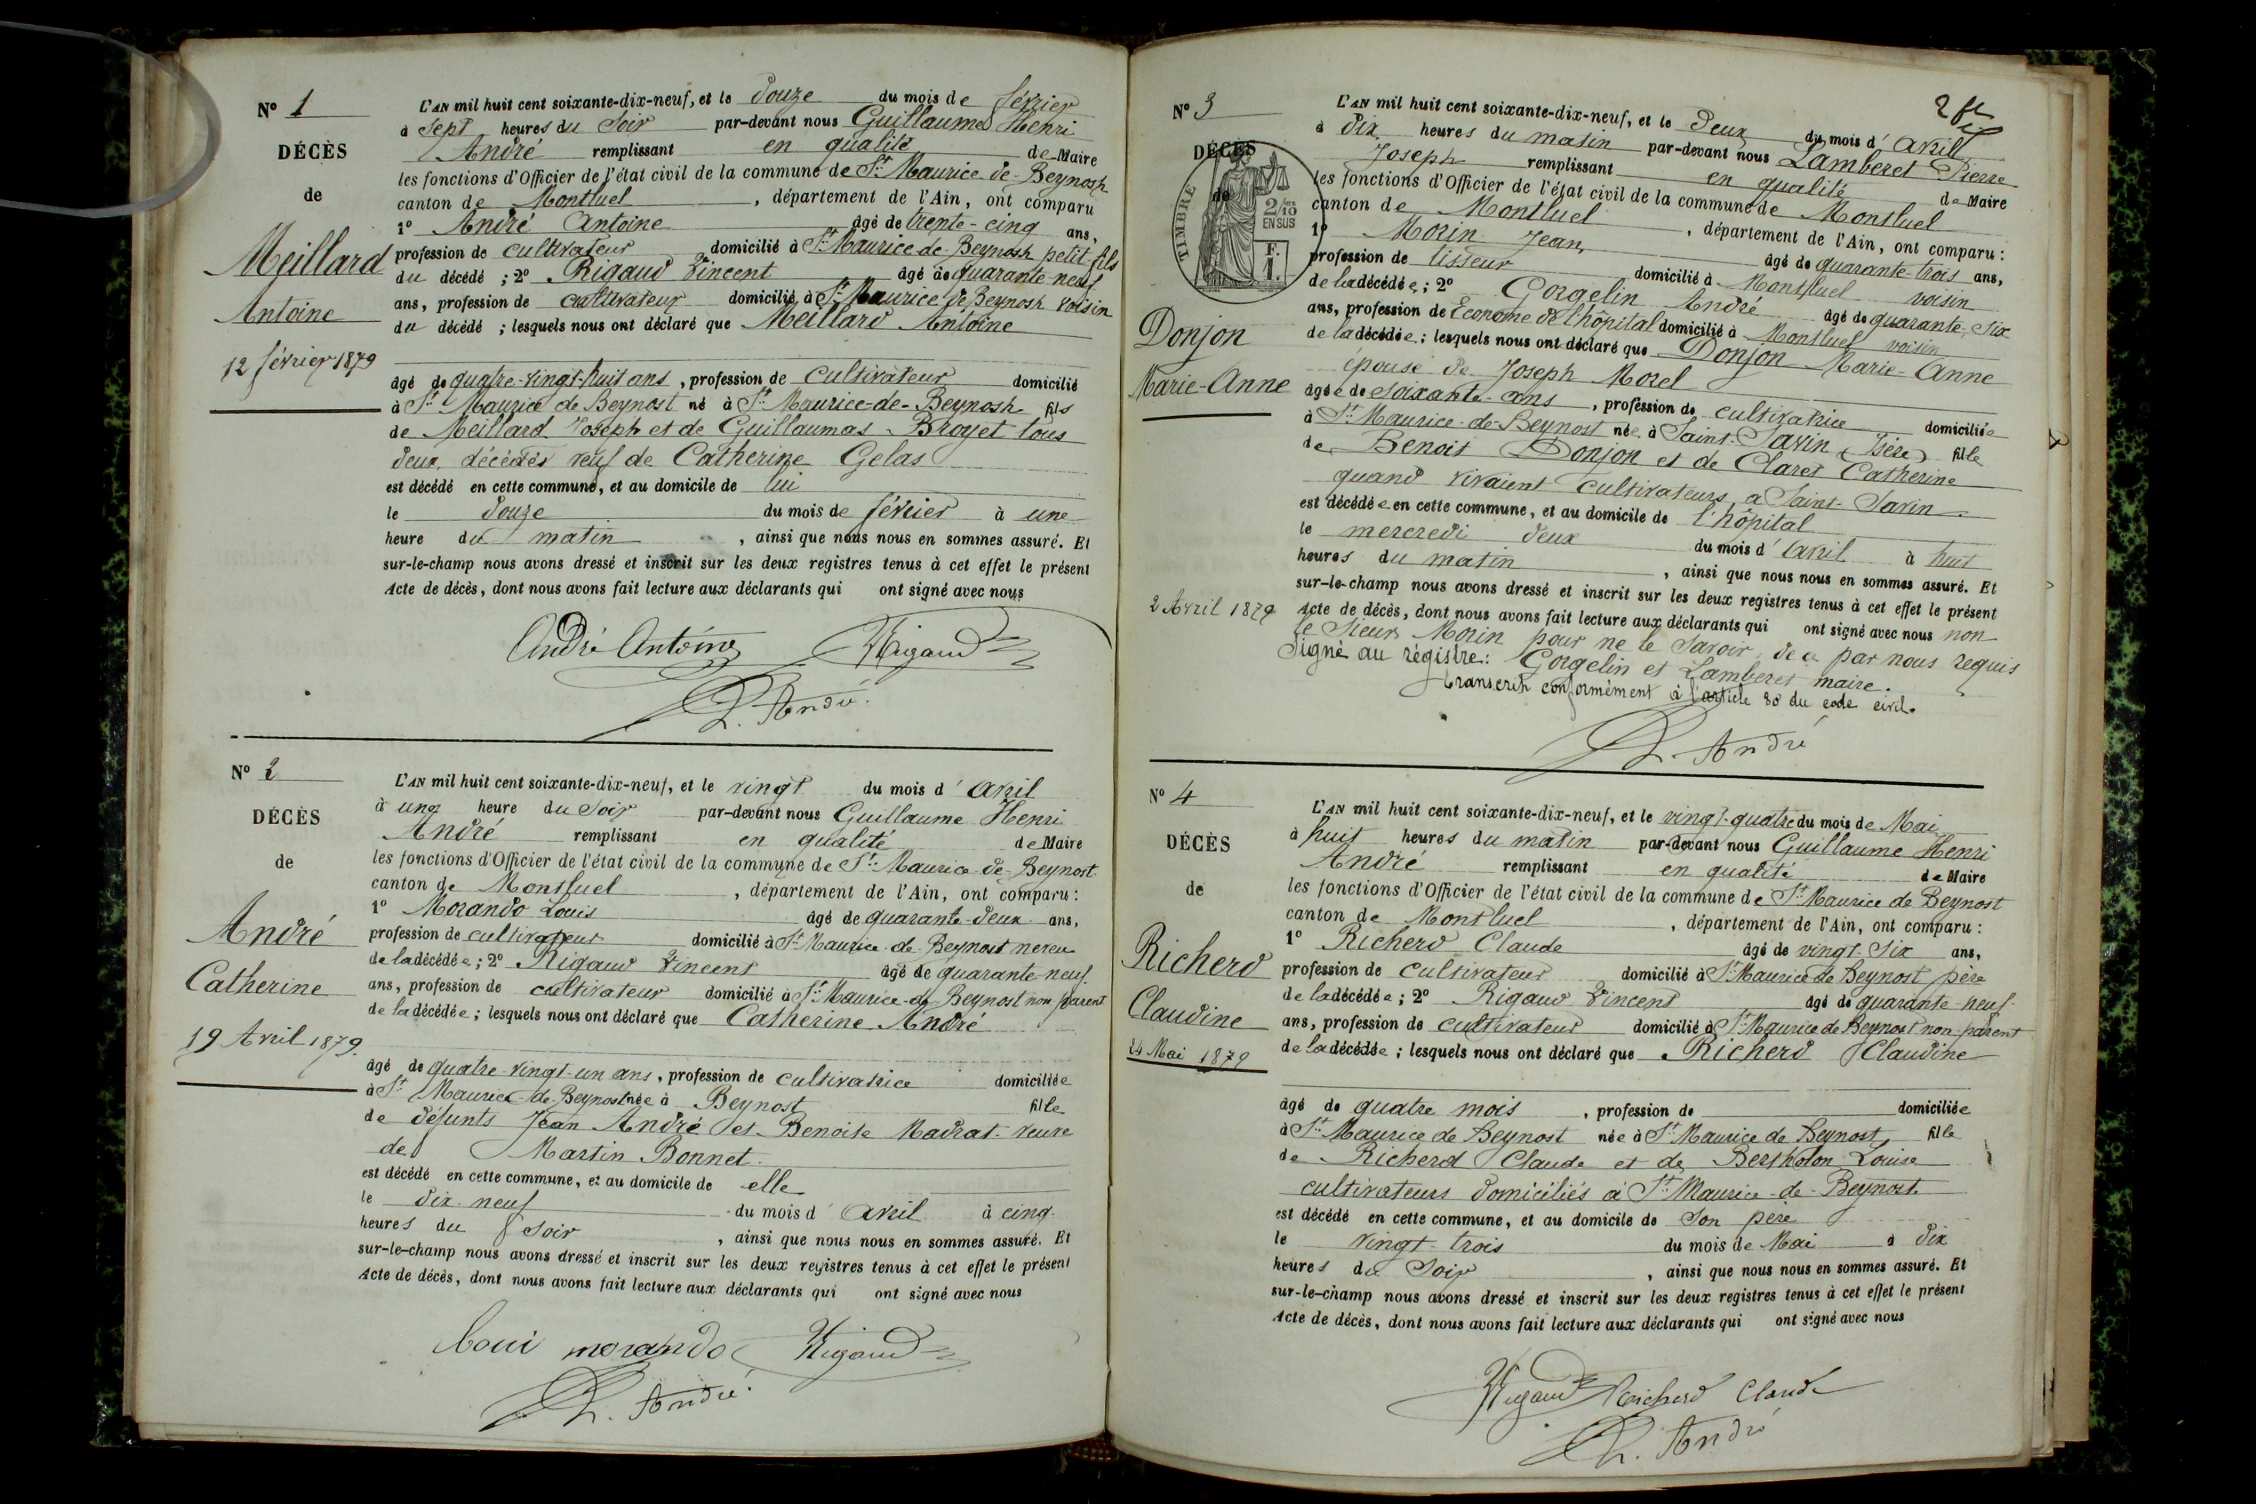 N° 1
DÉCÈS
de
Meillard
Antoine
12 février 1879
L'AN mil huit cent soixante-dix-neuf, et le douze du mois de février
à sept heures du soir par-devant nous Guillaume Henri
André remplissant en qualité de Maire
les fonctions d'Officier de l'état civil de la commune de St Maurice de Beynost
canton de Montluel, département de l'Ain, ont comparu
1° André Antoine âgé de trente-cinq ans,
profession de cultivateur domicilié à St Maurice de Beynost petit fils
du décédé ; 2° Rigaud Vincent âgé de quarante neuf
ans, profession de cultivateur domicilié à St Maurice de Beynost voisin
du décédé ; lesquels nous ont déclaré que Meillard Antoine
âgé de quatre-vingt-huit ans, profession de cultivateur domicilié
à St Maurice de Beynost né à St Maurice-de-Beynost fils
de Meillard Joseph et de Guillaumas Broyet tous
deux décédés veuf de Catherine Gelas
est décédé en cette commune, et au domicile de lui
le douze du mois de février à une
heure du matin, ainsi que nous nous en sommes assuré. Et
sur-le-champ nous avons dressé et inscrit sur les deux registres tenus à cet effet le présent
Acte de décès, dont nous avons fait lecture aux déclarants qui ont signé avec nous
André Antoine Rigaud
André
N° 2
DÉCÈS
de
André
Catherine
19 Avril 1879.
L'AN mil huit cent soixante-dix-neuf, et le vingt du mois d'avril
à une heure du soir par-devant nous Guillaume Henri
André remplissant en qualité de Maire
les fonctions d'Officier de l'état civil de la commune de St Maurice-de-Beynost
canton de Montluel, département de l'Ain, ont comparu :
1° Morando Louis âgé de quarante-deux ans,
profession de cultivateur domicilié à St Maurice-de-Beynost neveu
de la décédée ; 2° Rigaud Vincent âgé de quarante-neuf
ans, profession de cultivateur domicilié à St Maurice-de-Beynost non parent
de la décédée ; lesquels nous ont déclaré que Catherine André
âgé de quatre-vingt-un ans, profession de cultivatrice domiciliée
à St Maurice-de-Beynost née à Beynost fille
de défunts Jean André et Benoite Madrat veuve
de Martin Bonnet.
est décédé en cette commune, et au domicile de elle
le dix-neuf du mois d'avril à cinq
heures du soir, ainsi que nous nous en sommes assuré. Et
sur-le-champ nous avons dressé et inscrit sur les deux registres tenus à cet effet le présent
Acte de décès, dont nous avons fait lecture aux déclarants qui ont signé avec nous
Loui morando Rigaud
André
N° 3
DÉCÈS
de
TIMBRE
2/10
EN SUS
F.
1.
Donjon
Marie-Anne
2 Avril 1879
L'AN mil huit cent soixante-dix-neuf, et le deux du mois d'avril
à dix heures du matin par-devant nous Lamberet Pierre
Joseph remplissant en qualité de Maire
les fonctions d'Officier de l'état civil de la commune de Montluel
canton de Montluel, département de l'Ain, ont comparu :
1° Morin Jean, âgé de quarante-trois ans,
profession de tisseur domicilié à Montluel voisin
de la décédée ; 2° Gorgelin André âgé de quarante-six
ans, profession de Econome de l'hôpital domicilié à Montluel voisin
de la décédée ; lesquels nous ont déclaré que Donjon Marie-Anne
épouse de Joseph Morel
âgée de soixante-ans, profession de cultivatrice domiciliée
à St Maurice-de-Beynost née à Saint-Savin (Isère) fille
de Benoit Donjon et de Claret Catherine
quand vivaient cultivateurs à Saint-Savin.
est décédée en cette commune, et au domicile de l'hôpital
le mercredi deux du mois d'avril à huit
heures du matin, ainsi que nous nous en sommes assuré. Et
sur-le-champ nous avons dressé et inscrit sur les deux registres tenus à cet effet le présent
Acte de décès, dont nous avons fait lecture aux déclarants qui ont signé avec nous non
le sieur Morin pour ne le savoir, de ce par nous requis
Signé au régistre : Gorgelin et Lamberet maire.
transcrit conformément à l'article 80 du code civil.
André
N° 4
DÉCÈS
de
Richerd
Claudine
24 Mai 1879
L'AN mil huit cent soixante-dix-neuf, et le vingt-quatre du mois de Mai
à huit heures du matin par-devant nous Guillaume Henri
André remplissant en qualité de Maire
les fonctions d'Officier de l'état civil de la commune de St Maurice de Beynost
canton de Montluel, département de l'Ain, ont comparu :
1° Richerd Claude âgé de vingt-six ans,
profession de cultivateur domicilié à St Maurice de Beynost père
de la décédée ; 2° Rigaud Vincent âgé de quarante-neuf
ans, profession de cultivateur domicilié à St Maurice de Beynost non-parent
de la décédée ; lesquels nous ont déclaré que Richerd Claudine
âgé de quatre mois, profession de domiciliée
à St Maurice de Beynost née à St Maurice de Beynost, fille
de Richerd Claude et de Bertholon Louise
cultivateurs domiciliés à St Maurice-de-Beynost
est décédé en cette commune, et au domicile de son père
le vingt-trois du mois de Mai à dix
heures du soir, ainsi que nous nous en sommes assuré. Et
sur-le-champ nous avons dressé et inscrit sur les deux registres tenus à cet effet le présent
Acte de décès, dont nous avons fait lecture aux déclarants qui ont signé avec nous
Rigaud Richerd Claude
André